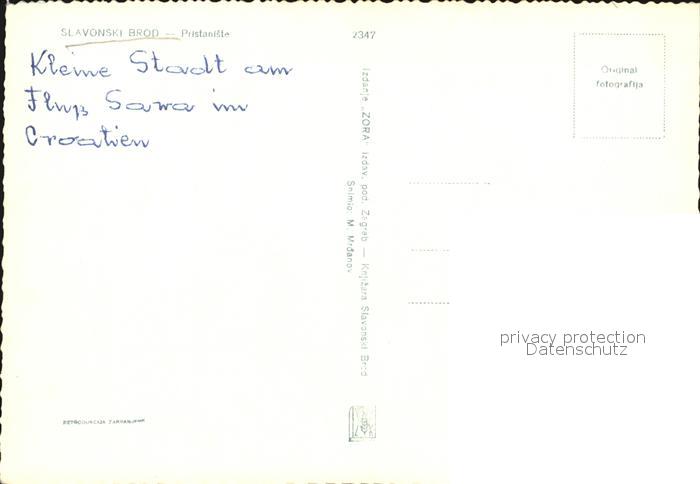 SLAVONSKI BROD — Pristanište
2347
Kleine Stadt am
Fluß Sawa im
Croatien
Original
fotografija
Izdanje „ZORA" izdav. pod. Zagreb — Knjižara Slavonski Brod
Snimio: M. Mrđanov
privacy protection
Datenschutz
REPRODUKCIJA ZABRANJENA